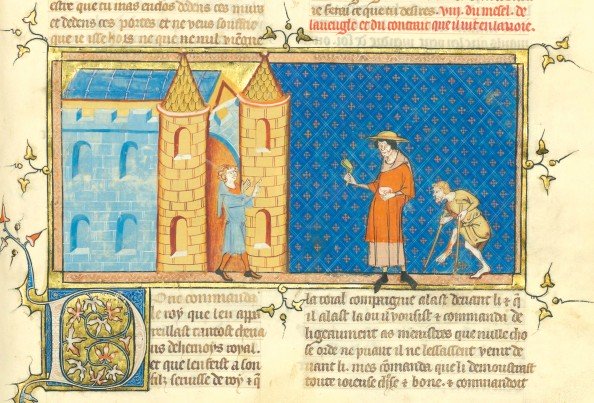 estre que tu mas enclos dedens ces murs
et dedens ces portes et ne veus souffrir
que ie isse hors ne que ne nul viengne
ie ferai ce que tu desires. viij. du mesel. de
laueugle et du contrait que il uit en la uoie.
Donc commanda
le roy que len appa
reillast tantost cheua
us dehernoys royal.
et que len feist a son
filz seruise de roy & q̃
la roial compaignie alast deuant li & q̃
il alast la ou il vousist & commanda di
ligeaument as menistres que nulle cho
se orde ne puant il ne lessassent venir de
uant li. mes cõmanda que li demoustrast
toute ioieuse chose & bone. & commandoit